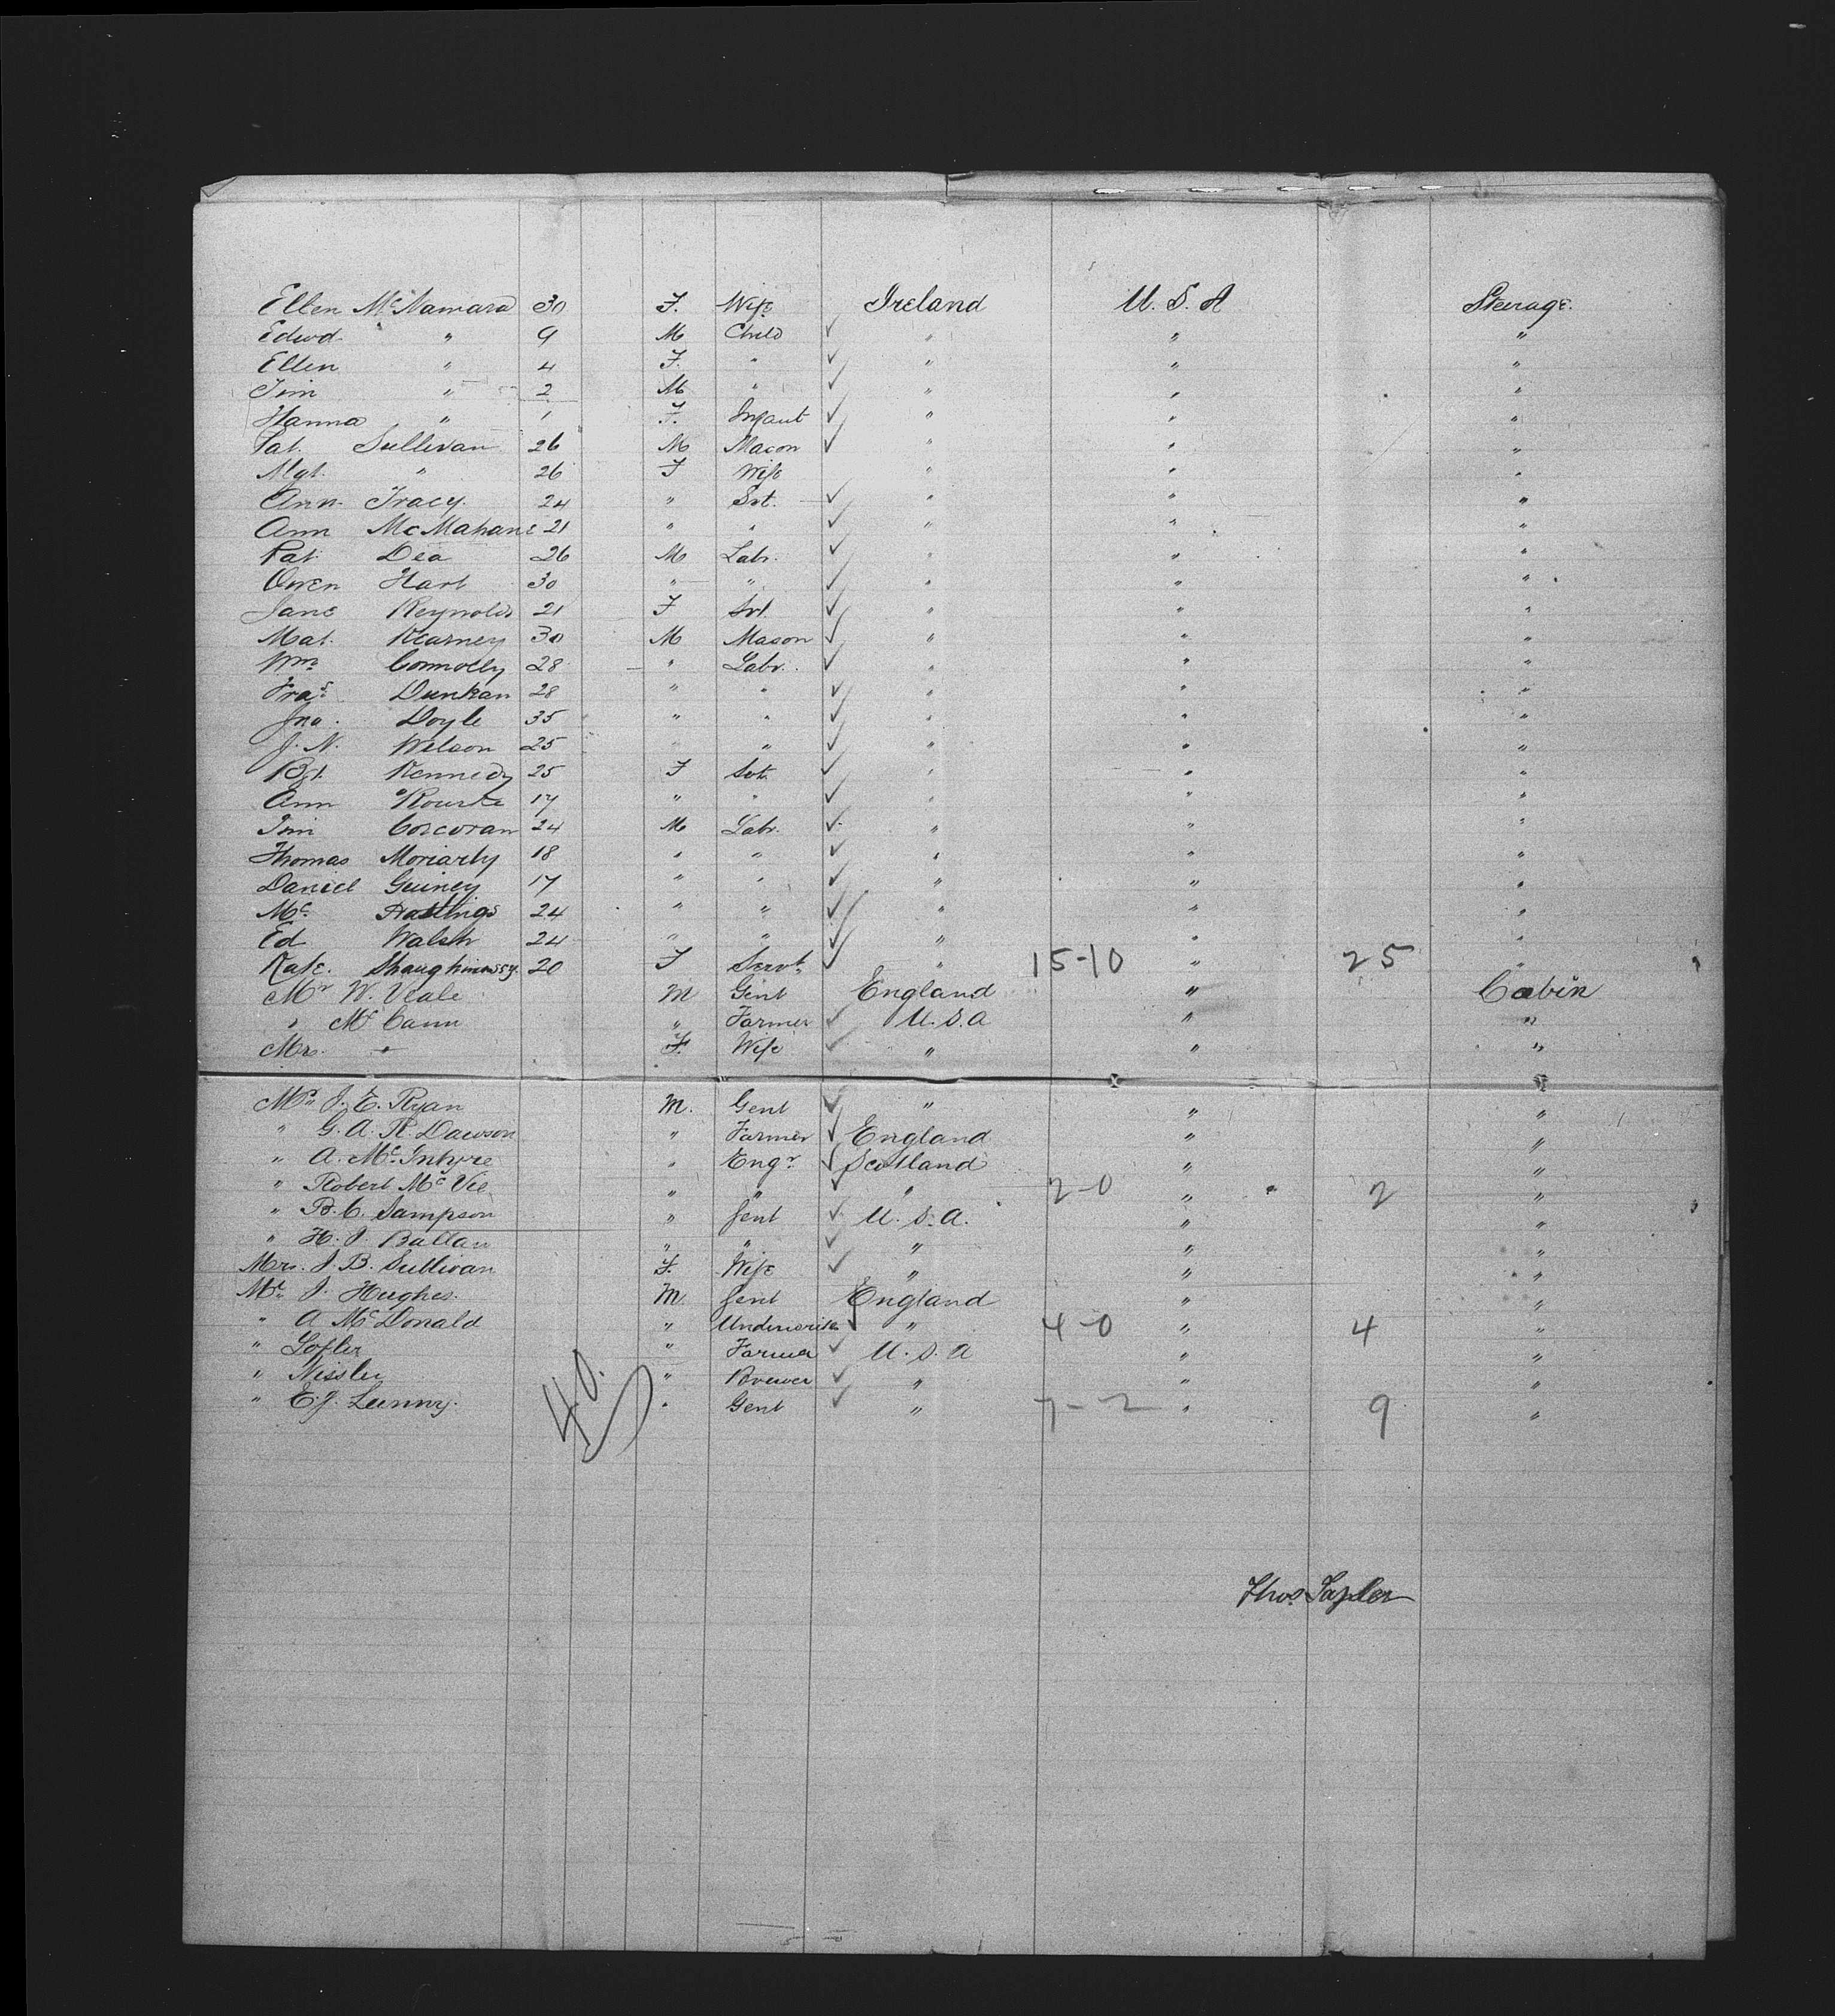 Ellen McNamara 30 F. Wife Ireland U. S. A Steerage.
Edwd. " 9 M Child ✓ " " "
Ellen " 4 F. " ✓ " " "
Jim " 2 M " ✓ " " "
Hanna " 1 F. Infant ✓ " " "
Pat. Sullivan 26 M Mason ✓ " " "
Mgt. " 26 F Wife " " "
Ann Tracy. 24 " Svt. ✓ " " "
Ann McMahane 21 " " ✓ " " "
Pat Dea 26 M Labr. ✓ " " "
Owen Hart 30 " " ✓ " " "
Jane Reynolds 21 F Svt. ✓ " " "
Mat. Kearney 30 M Mason ✓ " " "
Wm. Connolly 28 " Labr. ✓ " " "
Fras. Dunkan 28 " " ✓ " " "
Jno. Doyle 35 " " ✓ " " "
J. N. Wilson 25 " " ✓ " " "
Bgt. Kennedy 25 F Svt. ✓ " " "
Ann O'Rourke 17 " " ✓ " " "
Jim Corcoran 24 M Labr. ✓ " " "
Thomas Moriarty 18 " " ✓ " " "
Daniel Guiney 17 " " ✓ " " "
Mc. Hastings 24 " " ✓ " " "
Ed Walsh 24 " " ✓ " " "
Kate. Shaughnessy. 20 F Servt. ✓ " 15-10 " 25 "
Mr W. Veale M Gent England " Cabin
" McCann " Farmer ✓ U.S.A " "
Mrs. " F. Wife ✓ " " "
Mr. J. E. Ryan M. Gent ✓ " " "
" G. A. R. Dawson " Farmer ✓ England " "
" A. McIntyre " Engr. ✓ Scotland " "
" Robert McVie " " ✓ " 2-0 " 2 "
" B. C. Sampson " Gent ✓ U. S. A. " "
" H. J. Ballan " " ✓ " " "
Mrs. J. B. Sullivan F. Wife ✓ " " "
Mr. J. Hughes. M. Gent England " "
" A McDonald " Underwriter ✓ " 4-0 " 4 "
" Lofler " Farmer ✓ U. S. A " "
" Nissler " Brewer ✓ " " "
" E. J. Lunny. " Gent ✓ " 7-2 " 9 "
40.
Thos.